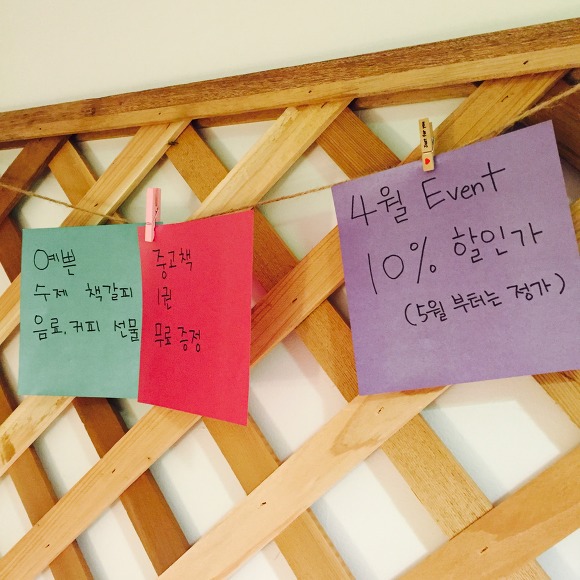 예쁜
수제 책갈피
음료, 커피 선물
중고책
1권
무료 증정
Just for you
4월 Event
10% 할인가
(5월 부터는 정가)